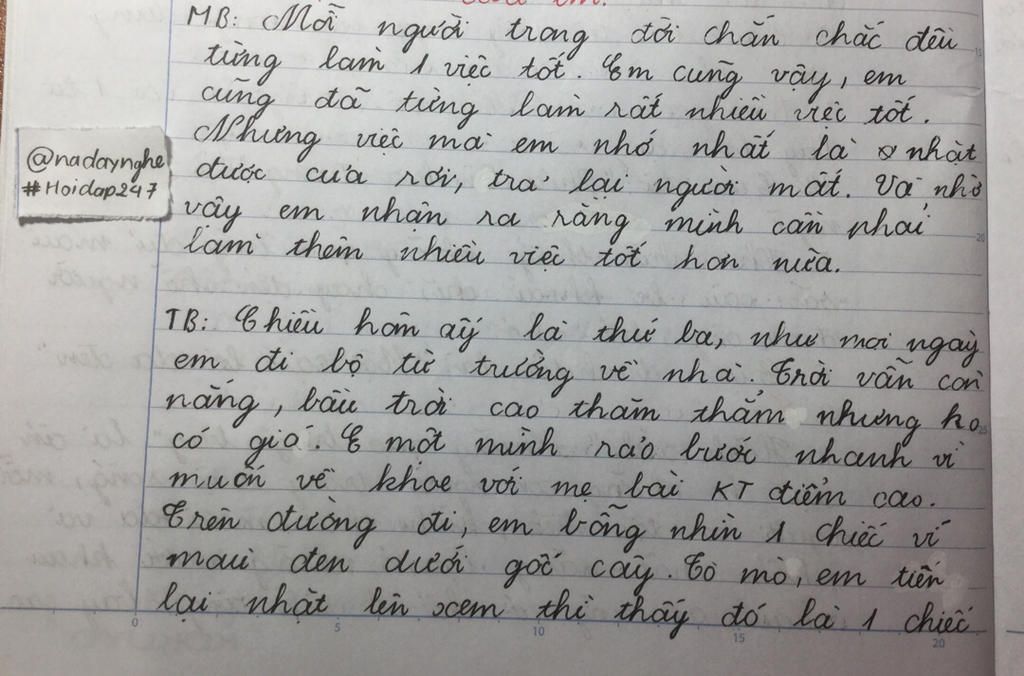 của em.
MB: Mỗi người trong đời chắn chắc đều
từng làm 1 việc tốt. Em cũng vậy, em
cũng đã từng làm rất nhiều việc tốt.
Nhưng việc mà em nhớ nhất là nhặt
được của rơi, trả lại người mất. Và nhờ
vậy em nhận ra rằng mình cần phải
làm thêm nhiều việc tốt hơn nữa.
@nadaynghe
#Hoidap247
TB: Chiều hôm ấy là thứ ba, như mọi ngày
em đi bộ từ trường về nhà. Trời vẫn còn
nắng, bầu trời cao thăm thẳm nhưng ko
có gió. E một mình rảo bước nhanh vì
muốn về khoe với mẹ bài KT điểm cao.
Trên đường đi, em bỗng nhìn 1 chiếc ví
màu đen dưới gốc cây. Tò mò, em tiến
lại nhặt lên xem thì thấy đó là 1 chiếc
0 5 10 15 20